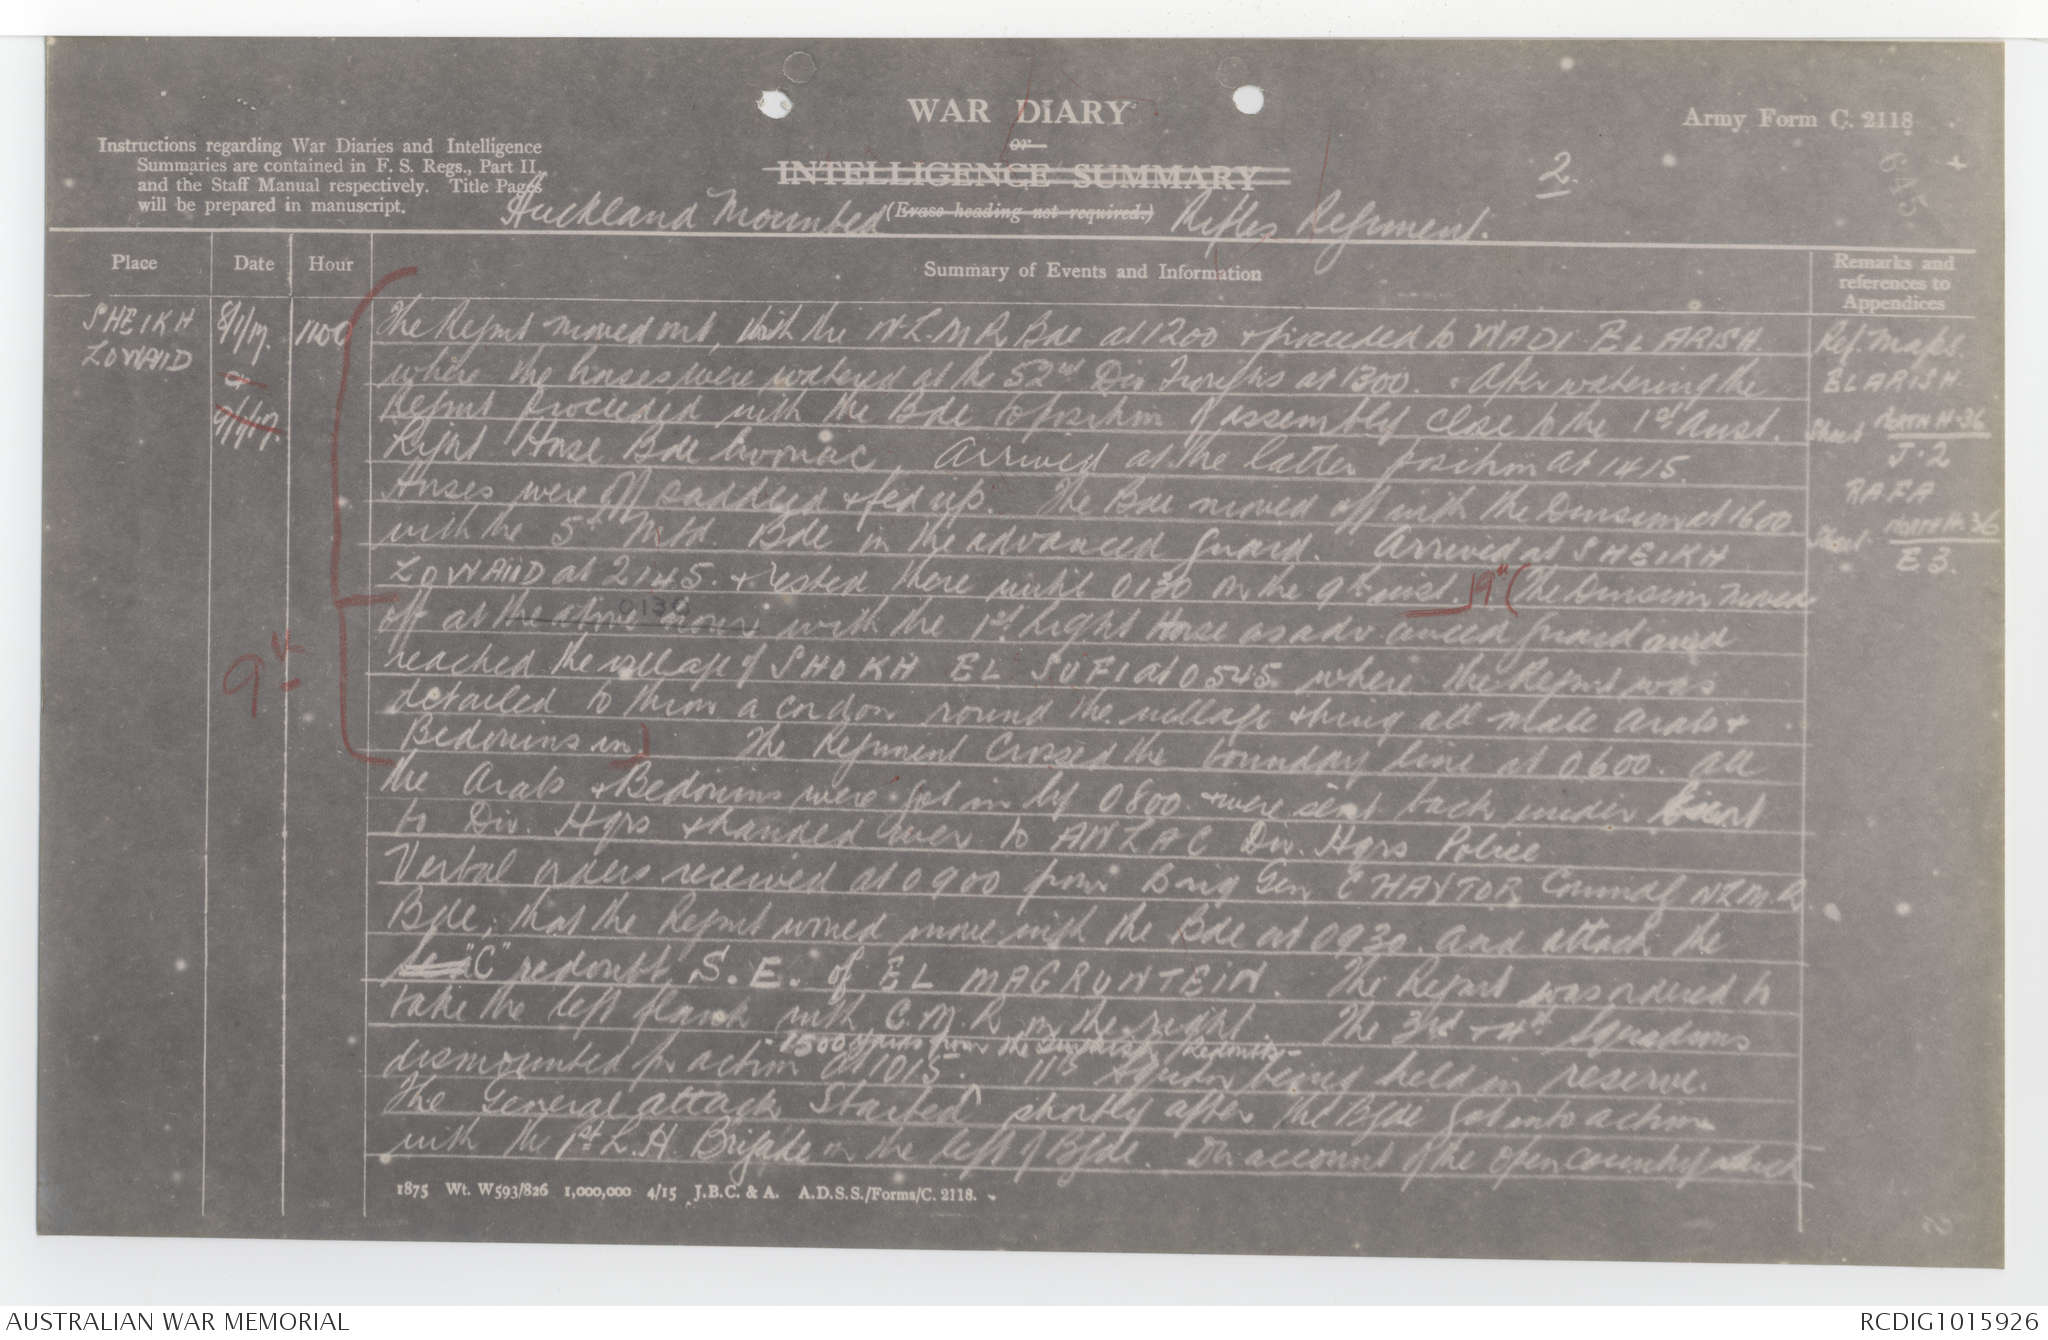 WAR DIARY
or
INTELLIGENCE SUMMARY
(Erase heading not required.)
Army Form C. 2118
Instructions regarding War Diaries and Intelligence
Summaries are contained in F. S. Regs., Part II.
and the Staff Manual respectively. Title Pages
will be prepared in manuscript.
2.
645
Auckland Mounted Rifles Regiment.
Place
Date
Hour
Summary of Events and Information
Remarks and
references to
Appendices
SHEIKH
ZOWAIID
8/1/17.
9/1/17.
1100
9th
The Regmt moved out, with the N.Z.M.R. Bde at 1200 & proceeded to WADI EL ARISH
where the horses were watered at the 52nd Div Troughs at 1300. After watering the
Regmt proceeded with the Bde to position of assembly close to the 1st Aust.
Light Horse Bde bivouac. Arrived at the latter position at 1415.
Horses were off saddled & fed up. The Bde moved off with the Division at 1600
with the 5th Mtd. Bde in the advanced guard. Arrived at SHEIKH
ZOWAIID at 2145. & rested there until 0130 on the 9th inst. 9th (The Division moved
off at the above hour 0130 with the 1st Light Horse as advanced guard and
reached the village of SHOKH EL SUFI at 0545 where the Regmt was
detailed to throw a cordon round the village & bring all male Arabs &
Bedouins in) The Regiment crossed the boundary line at 0600. All
the Arabs & Bedouins were got in by 0800 & were sent back under
to Div. Hqrs & handed over to ANZAC Div. Hqrs Police
Verbal orders received at 0900 from Brig Gen CHAYTOR Commdg N.Z.M.R.
Bde, that the Regmt would move with the Bde at 0930 and attack the
"C" redoubt S.E. of EL MAGRUNTEIN. The Regmt was ordered to
take the left flank with C.M.R. on the right. The 3rd & 4th Squadrons
1500 yards from the Redoubts
dismounted for action at 1015. 11th Squdn being held in reserve.
The General attack started shortly after the Bgde got into action
with the 1st L.H. Brigade on the left of Bgde. On account of the open country which
Ref. Maps.
EL ARISH.
Sheet NORTH H-36
J.2
RAFA
Sheet NORTH H-36
E 3.
1875 Wt. W593/826 1,000,000 4/15 J.B.C. & A. A.D.S.S./Forms/C. 2118.
AUSTRALIAN WAR MEMORIAL
RCDIG1015926